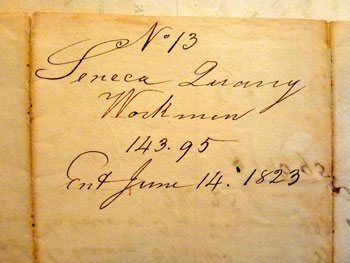 No 13
Seneca Quarry
Workmen
143.95
Ent June 14. 1823